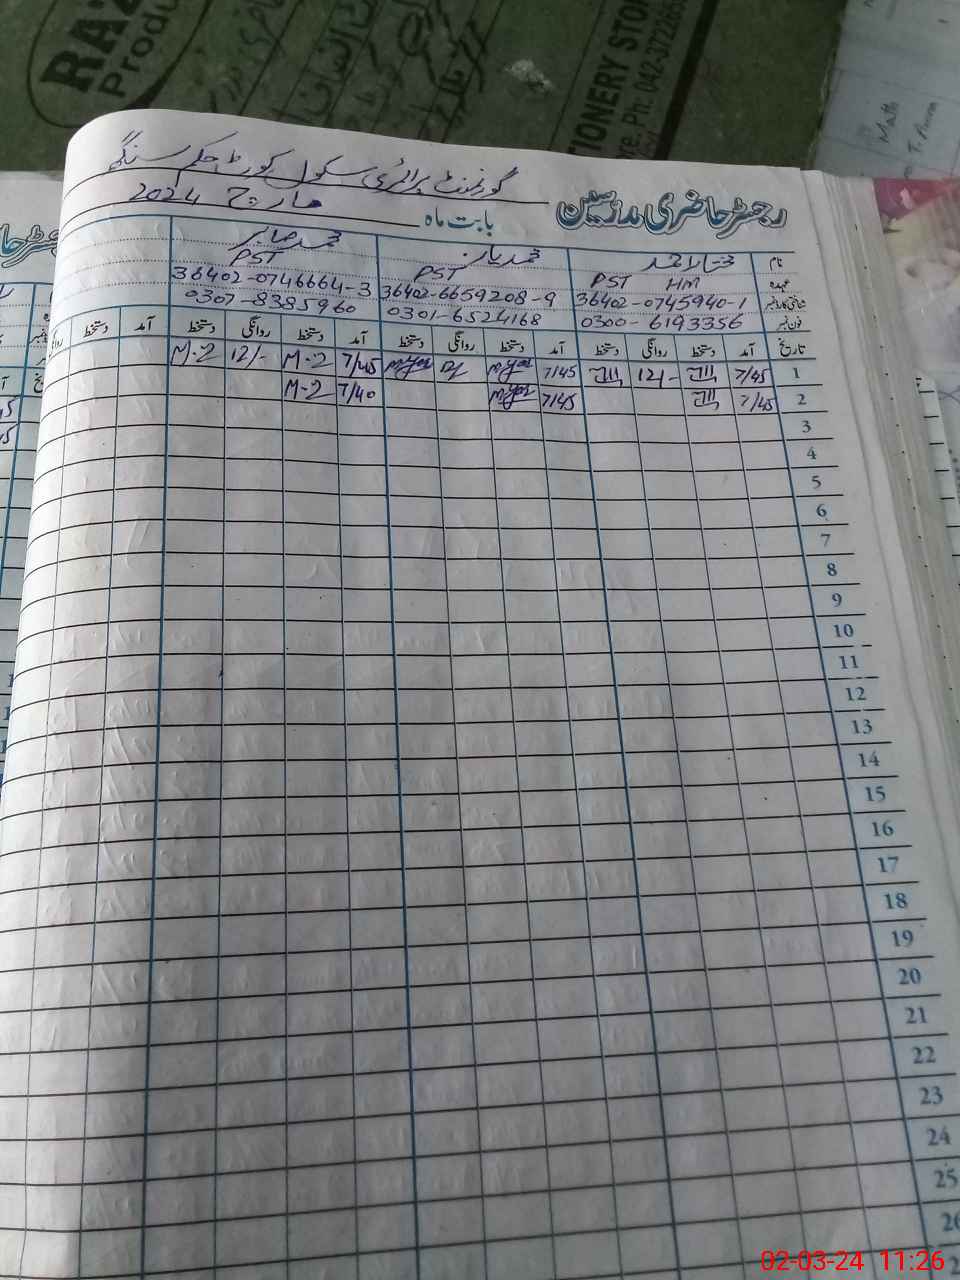 RAZ
Produ
TIONERY STOR
re. Ph: 042-372265
Math
T. Room
گورنمنٹ پرائمری سکول کورٹ حکم سنگھ
رجسٹر حاضری مدرسین
بابت ماہ مارچ 2024
نام مختار احمد محمد یار محمد صابر
عہدہ PST HM PST PST
شناختی کارڈ نمبر 36402-0745940-1 36402-6659208-9 36402-0746664-3
فون نمبر 0300-6193356 0301-6524168 0307-8385960
تاریخ آمد دستخط روانگی دستخط آمد دستخط روانگی دستخط آمد دستخط روانگی دستخط آمد دستخط
1 7/45 12/- 7/45 7/45 M-2 12/- M-2
2 7/45 7/45 7/40 M-2
3
4
5
6
7
8
9
10
11
12
13
14
15
16
17
18
19
20
21
22
23
24
25
26
02-03-24 11:26